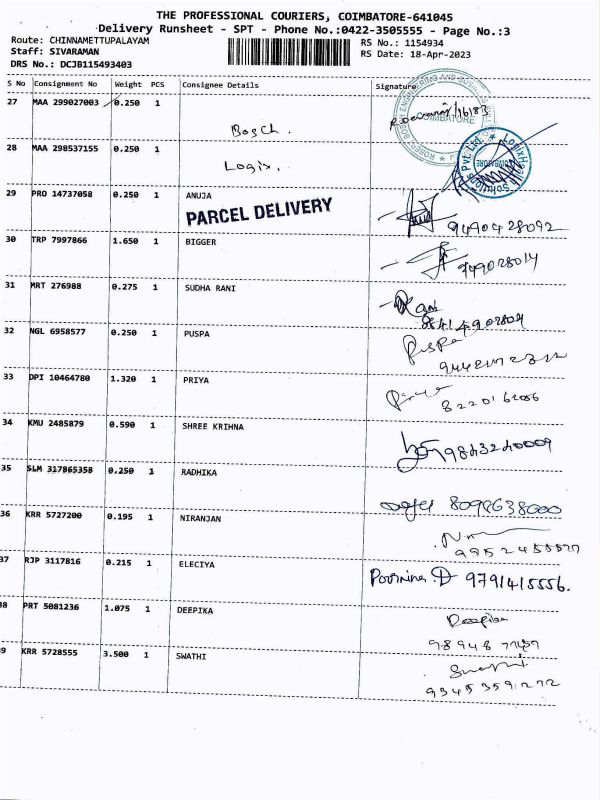 THE PROFESSIONAL COURIERS, COIMBATORE-641045
Delivery Runsheet - SPT - Phone No.:0422-3505555 - Page No.:3
Route: CHINNAMETTUPALAYAM
Staff: SIVARAMAN
DRS No.: DCJB115493403
RS No.: 1154934
RS Date: 18-Apr-2023
S No Consignment No Weight PCS Consignee Details Signature
27 MAA 299027003 0.250 PCS
Bosch.
COIMBATORE
28 MAA 298537155 0.250 1
Logix.
COIMBATORE
29 PRO 14737058 0.250 1 ANUJA
PARCEL DELIVERY
9490428092
30 TRP 7997866 1.650 1 BIGGER
949028014
31 MRT 276988 0.275 1 SUDHA RANI
Rani
32 NGL 6958577 0.250 1 PUSPA
Puspa
33 DPI 10464780 1.320 1 PRIYA
34 KMU 2485879 0.590 1 SHREE KRIHNA
9843240009
35 SLM 317865358 0.250 1 RADHIKA
8098638000
36 KRR 5727200 0.195 1 NIRANJAN
37 RJP 3117816 0.215 1 ELECIYA
Poornima D 9791415556.
38 PRT 5081236 1.075 1 DEEPIKA
Deepika
39 KRR 5728555 3.500 1 SWATHI
Swathi
9345359272